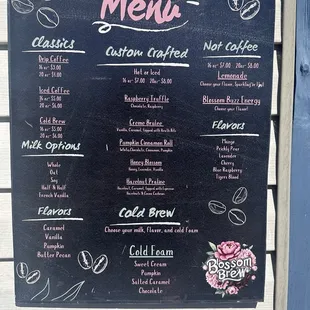 Menu
Classics
Drip Coffee
16 oz- $3.00
20 oz- $4.00
Iced Coffee
16 oz- $5.00
20 oz- $6.00
Cold Brew
16 oz- $5.00
20 oz- $6.00
Milk Options
Whole
Oat
Soy
Half & Half
French Vanilla
Flavors
Caramel
Vanilla
Pumpkin
Butter Pecan
Custom Crafted
Hot or Iced
16 oz- $7.00 20oz- $8.00
Raspberry Truffle
Chocolate, Raspberry
Creme Brulee
Vanilla, Caramel, topped with
Pumpkin Cinnamon Roll
White Chocolate, Cinnamon, Pumpkin
Honey Blossom
Honey, Lavender, Vanilla
Hazelnut Praline
Hazelnut, Caramel, topped with
Cold Brew
Choose your milk, flavor, and cold foam
Cold Foam
Sweet Cream
Pumpkin
Salted Caramel
Chocolate
Not Coffee
16 oz- $7.00 20 oz- $8.00
Lemonade
Choose your Flavor,
Blossom Buzz Energy
Choose your Flavor
Flavors
Mango
Prickly Pear
Lavender
Cherry
Blue Raspberry
Tigers Blood
Blossom
Brew